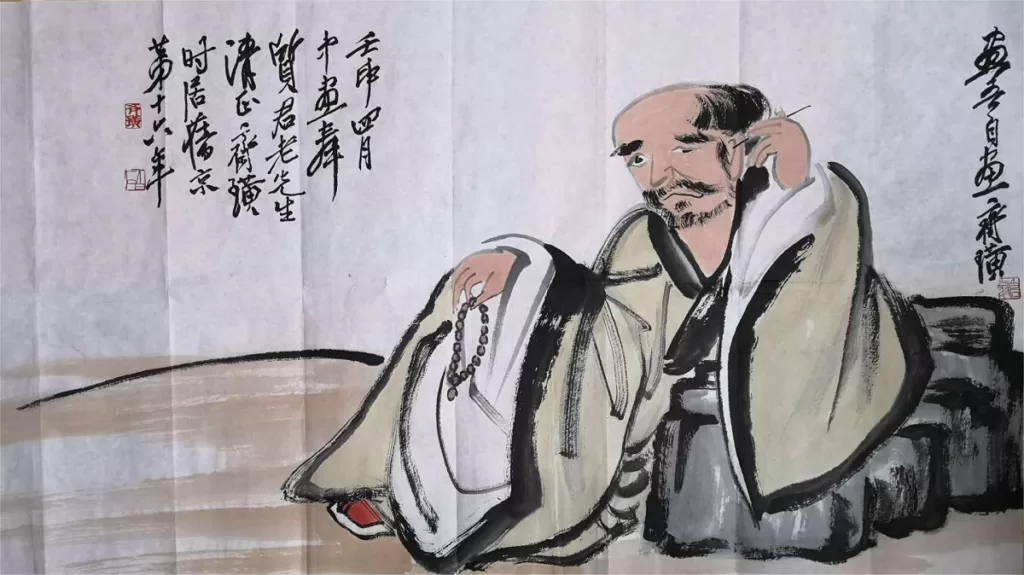 畫吾自畫 齊璜
壬申四月
中畫
賢君老先生
清正 齊璜
时居舊京
第十六年